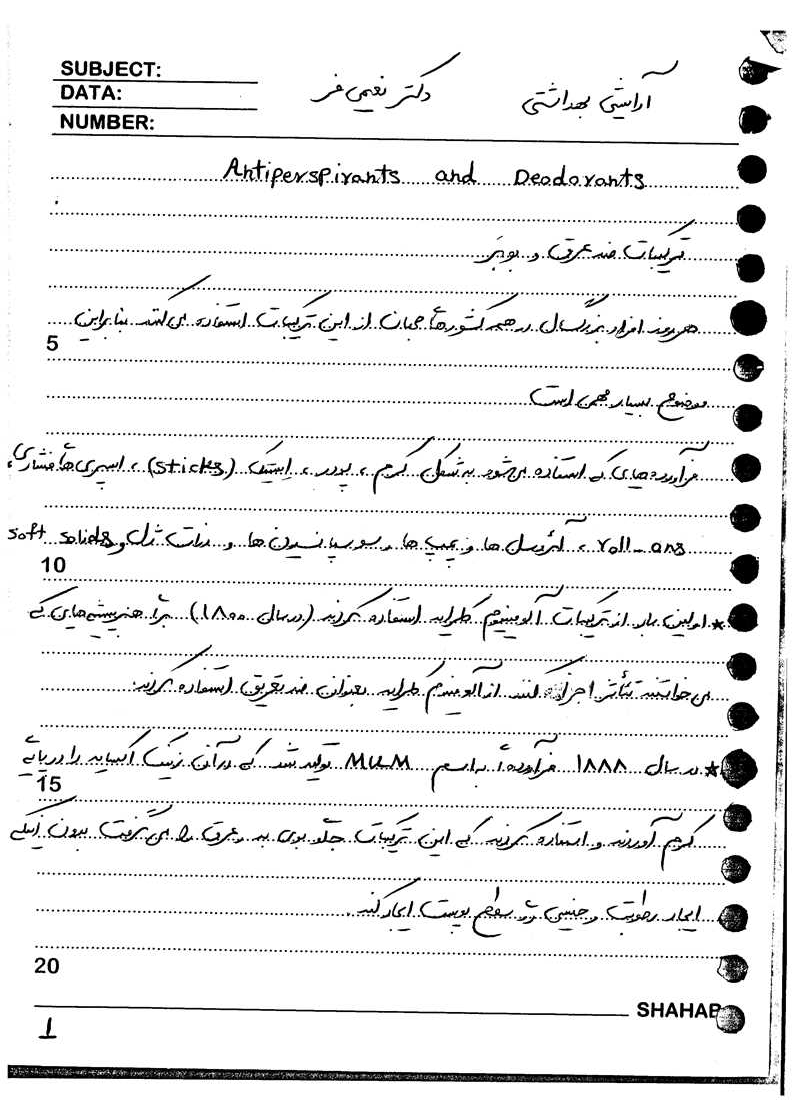 SUBJECT:
DATA:
NUMBER:
آرایشی بهداشتی دکتر نعیمی فر
Antiperspirants and Deodorants
ترکیبات ضد عرق و بوبر
هر روز افراد بزرگسال در همه کشورهای جهان از این ترکیبات استفاده می کنند بنابراین
5
موضوع بسیار مهمی است
فراورده هایی که استفاده می شود به شکل کرم ، پودر ، استیک (sticks) ، اسپری ها فشاری ،
roll-ons ، آئروسل ها و پمپ ها و سوسپانسیون ها و ذرات ژل و soft solids
10
★ اولین بار از ترکیبات آلومینیوم کلراید استفاده کردند (در سال ۱۸۰۰) برای هنرپیشه هایی که
می خواستند تئاتر اجرا کنند از آلومینیوم کلراید بعنوان ضد تعریق استفاده کردند.
★ در سال ۱۸۸۸ فرآورده ای به اسم MUM تولید شد که در آن زینک اکساید را در پایه
15
کرم آوردند و استفاده کردند که این ترکیبات جلو بوی بد عرق را می گرفت بدون اینکه
ایجاد رطوبت و خیسی روی سطح پوست ایجاد کند.
20
SHAHAB
1